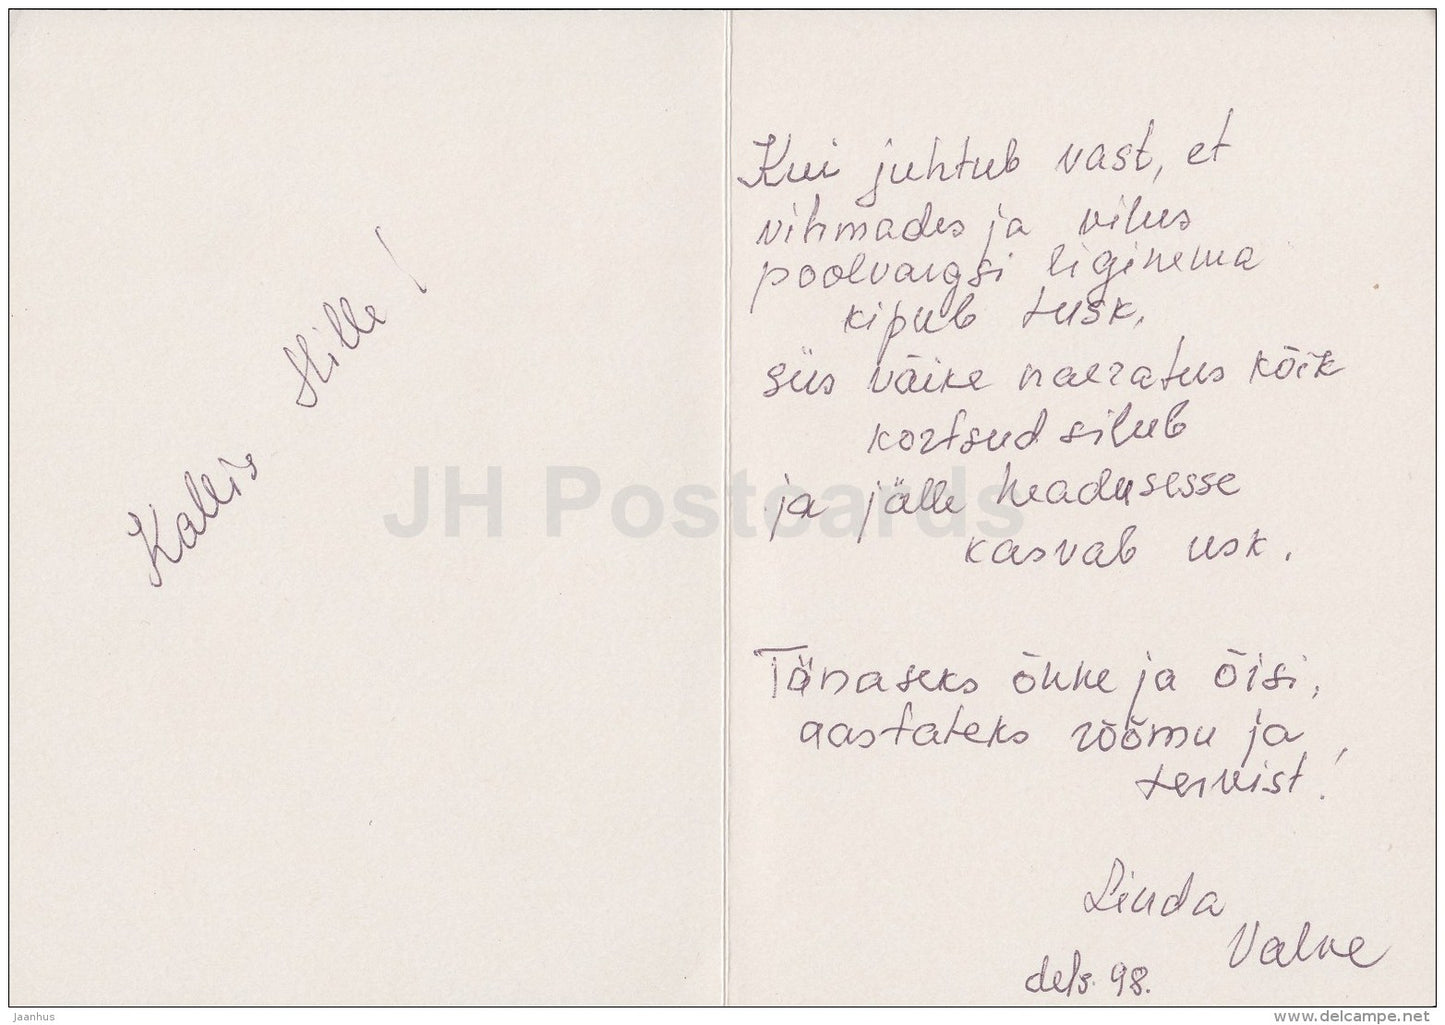 Kallis Hille!
Kui juhtub vast, et
vihmades ja vilus
poolvargsi liginema
kipub tusk,
siis väike naeratus kõik
kortsud silub
ja jälle headusesse
kasvab usk.
Tänaseks õhke ja õisi,
aastateks rõõmu ja
tervist!
Linda
Valve
dets. 98.
JH Postcards
jaanhus
www.delcampe.net